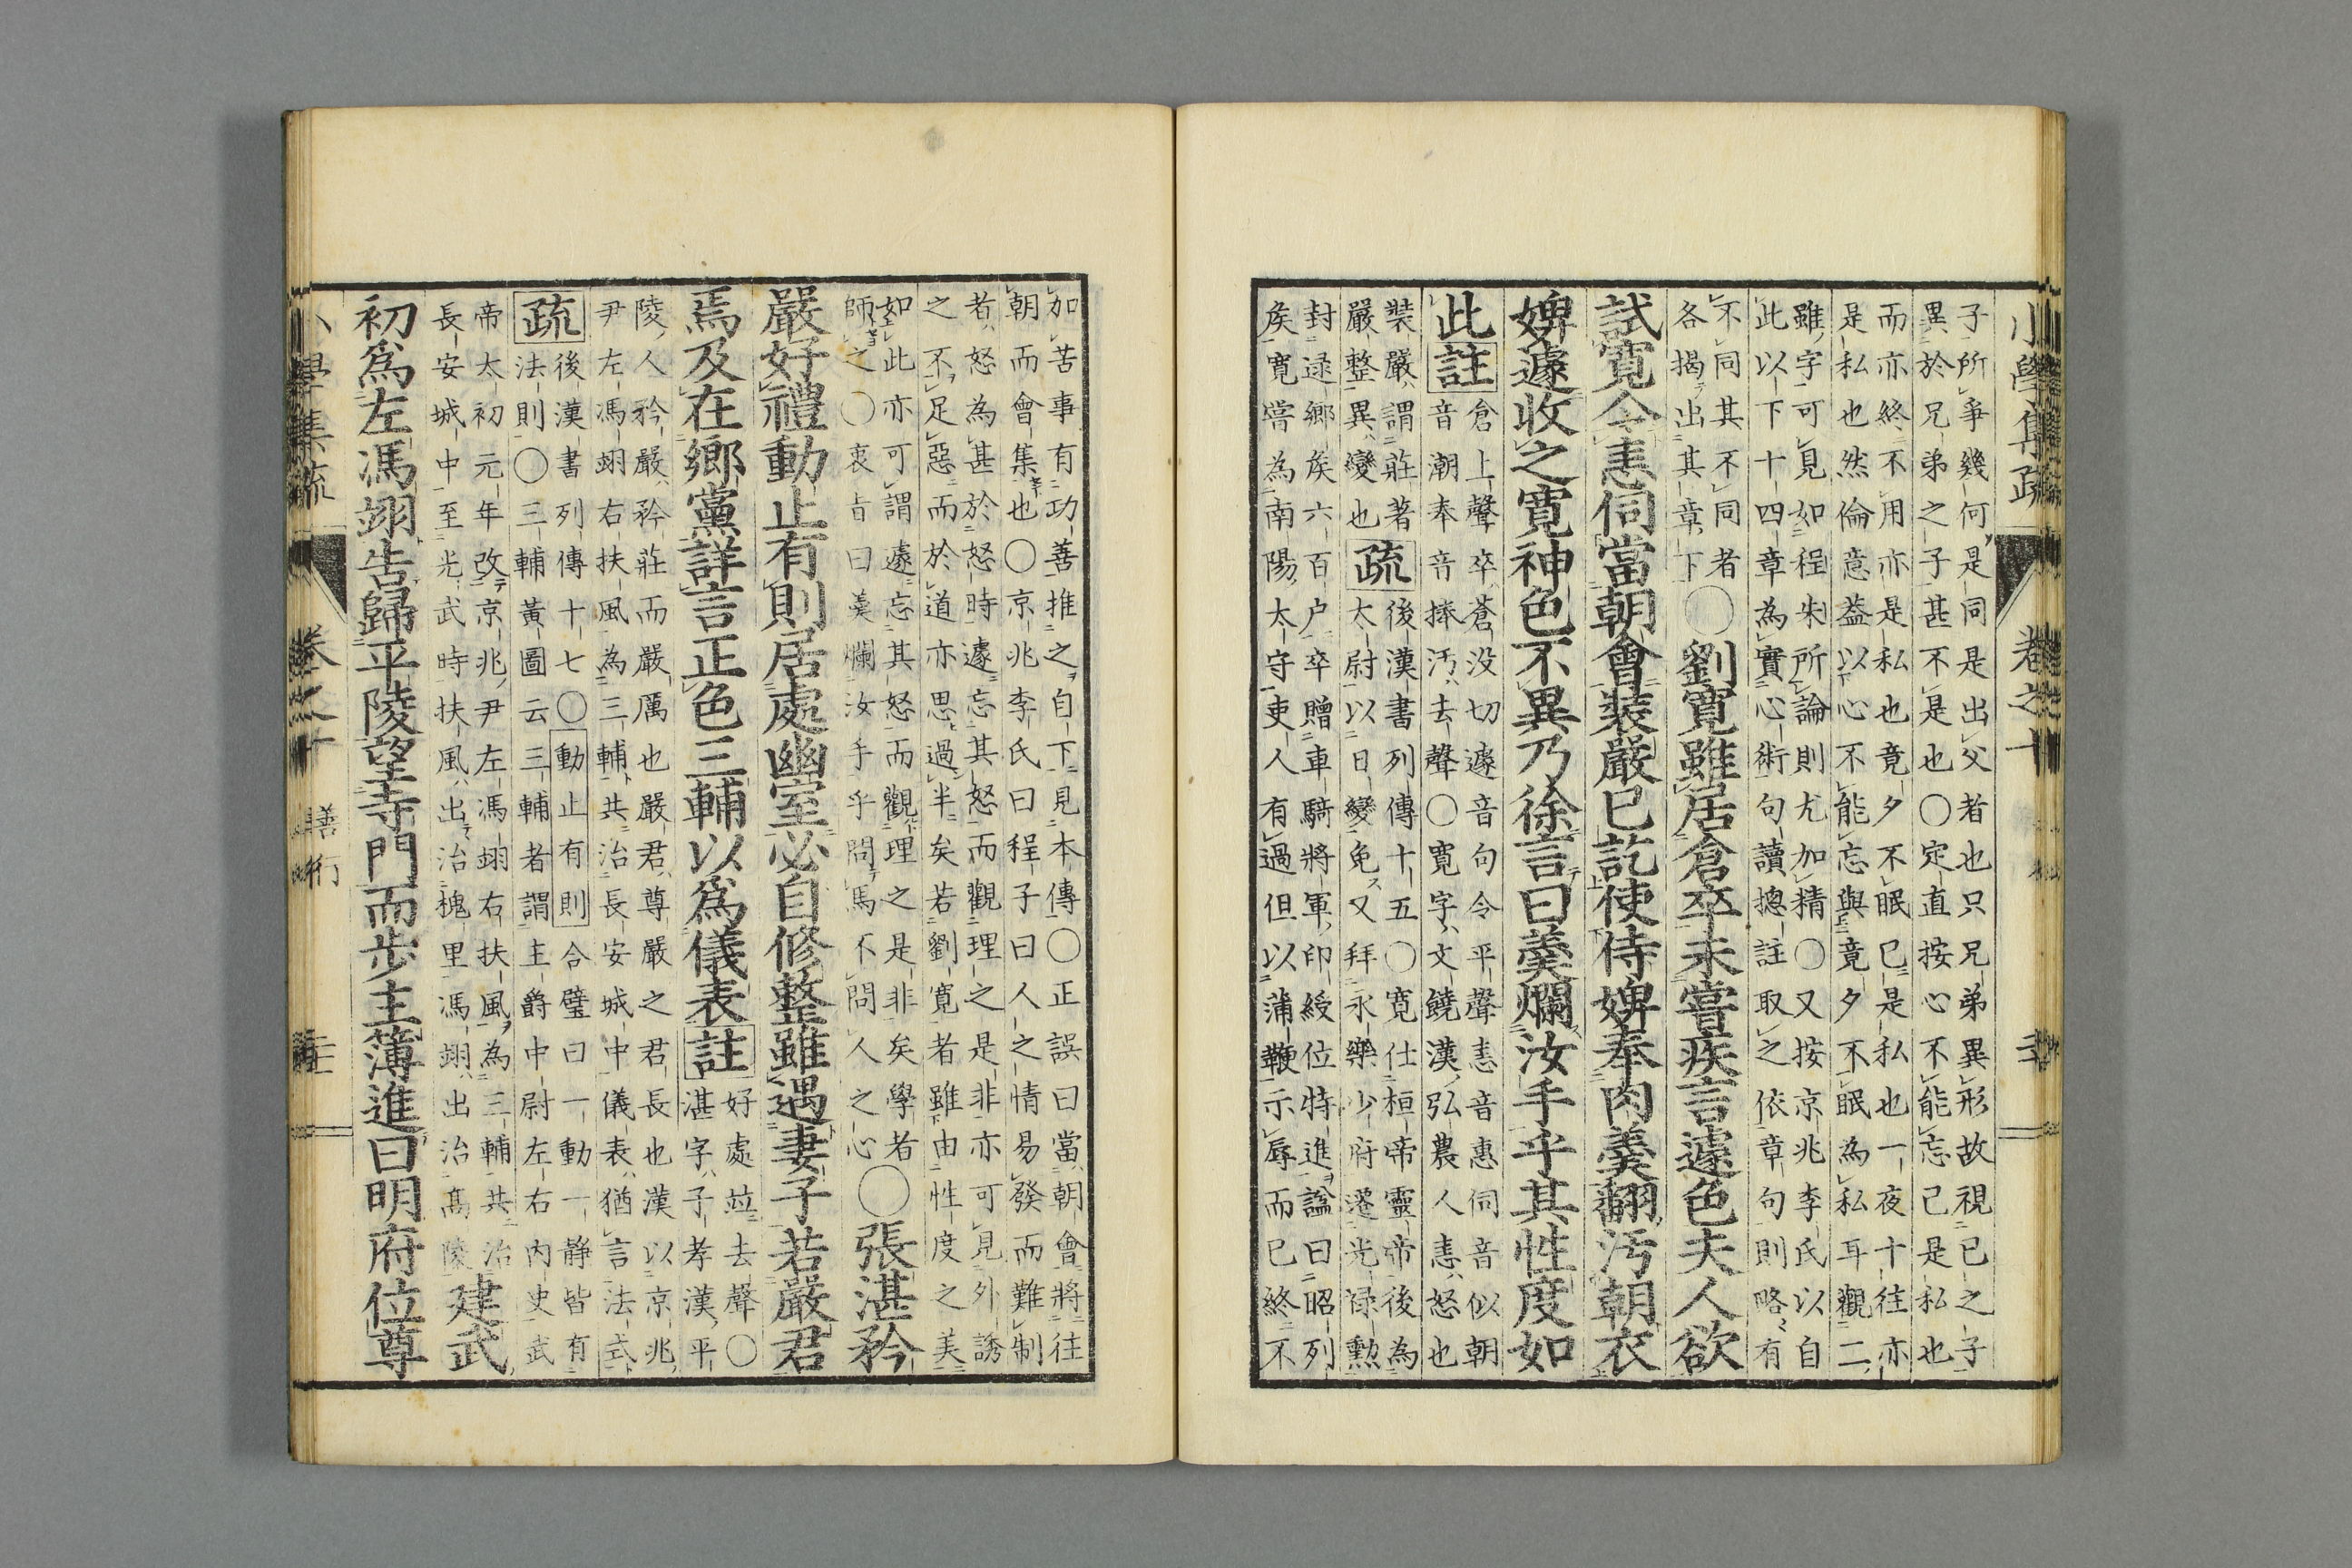 小學集疏　卷之十
子所爭幾何是同是出父者也只兄弟異形故視已之子
異於兄弟之子甚不是也○定直按心不能忘己是私也
而亦終不用亦是私也竟夕不眠已是私也一夜十往亦
是私也然倫意葢以心不能忘與竟夕不眠為私耳觀二
雖字可見如程朱所論則尤加精○又按京兆李氏以自
此以下十四章為實心術句讀摠註取之依章句則略有
不同其不同者
各揭出其章下
○劉寬雖居倉卒未嘗疾言遽色夫人欲
試寬令恚伺當朝會裝嚴已訖使侍婢奉肉羹翻汚朝衣
婢遽收之寬神色不異乃徐言曰羹爛汝手乎其性度如
此註
倉上聲卒蒼没切遽音句令平聲恚音惠伺音似朝
音潮奉音捧汚去聲○寬字文饒漢弘農人恚怒也
裝嚴謂莊著
嚴整異變也
疏
後漢書列傳十五○寬仕桓帝靈帝後為
太尉以日變免又拜永樂少府遷光祿勲
封逯鄉矦六百户卒贈車騎將軍印綬位特進諡曰昭列
矦寬嘗為南陽太守吏人有過但以蒲鞭示辱而已終不
加苦事有功善推之自下見本傳○正誤曰當朝會將往
朝而會集也○京兆李氏曰程子曰人之情易發而難制
者怒為甚於怒時遽忘其怒而觀理之是非亦可見外誘
之不足惡而於道亦思過半矣若劉寬者雖由性度之美
如此亦可謂遽忘其怒而觀理之是非矣學者
師之○衷旨曰羹爛汝手乎問馬不問人之心
○張湛矜
嚴好禮動止有則居處幽室必自修整雖遇妻子若嚴君
焉及在鄉黨詳言正色三輔以爲儀表註
好處竝去聲○
湛字子孝漢平
陵人矜嚴矜莊而嚴厲也嚴君尊嚴之君長也漢以京兆
尹左馮翊右扶風為三輔共治長安城中儀表猶言法式
疏
後漢書列傳十七○動止有則合璧曰一動一静皆有
法則○三輔黃圖云三輔者謂主爵中尉左右内史武
帝太初元年改京兆尹左馮翊右扶風為三輔共治
長安城中至光武時扶風出治槐里馮翊出治高陵
建武
初爲左馮翊告歸平陵望寺門而步主簿進曰明府位尊
小學集疏　卷之十　善行